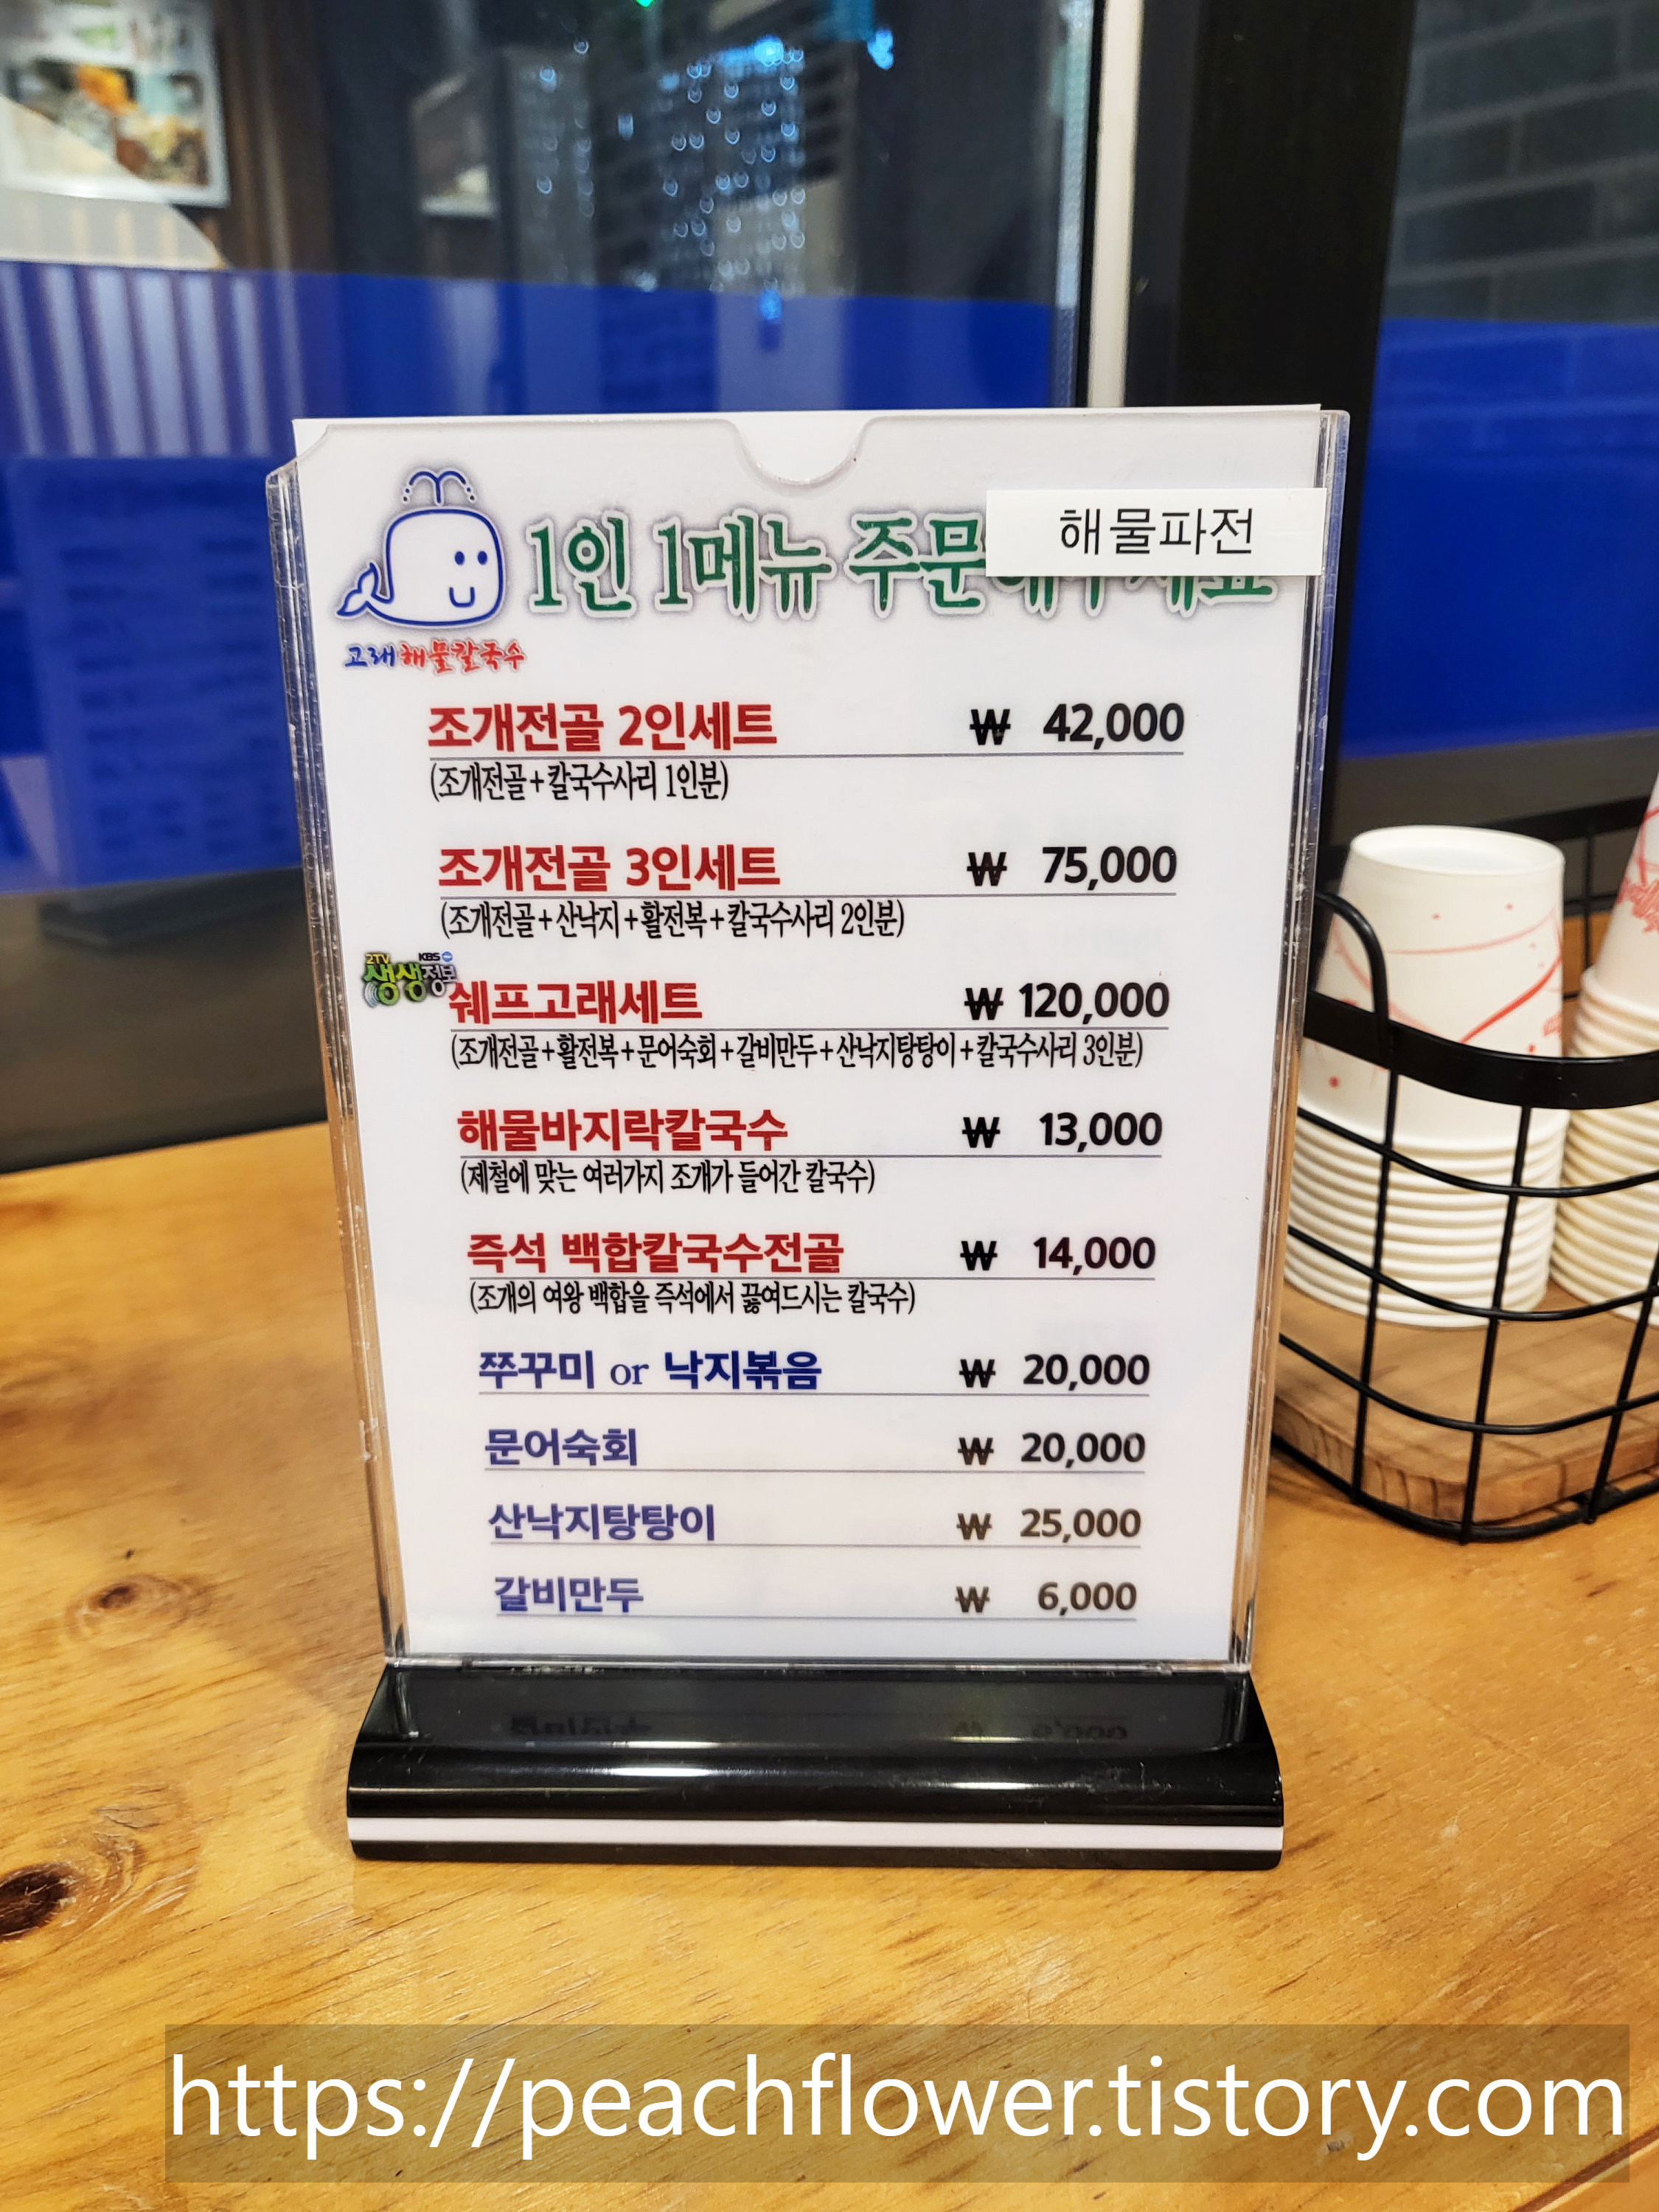 해물파전
1인 1메뉴 주문
고래해물칼국수
조개전골 2인세트 ₩ 42,000
(조개전골+칼국수사리 1인분)
조개전골 3인세트 ₩ 75,000
(조개전골+산낙지+활전복+칼국수사리 2인분)
2TV KBS
생생정보
쉐프고래세트 ₩ 120,000
(조개전골+활전복+문어숙회+갈비만두+산낙지탕탕이+칼국수사리 3인분)
해물바지락칼국수 ₩ 13,000
(제철에 맞는 여러가지 조개가 들어간 칼국수)
즉석 백합칼국수전골 ₩ 14,000
(조개의 여왕 백합을 즉석에서 끓여드시는 칼국수)
쭈꾸미 or 낙지볶음 ₩ 20,000
문어숙회 ₩ 20,000
산낙지탕탕이 ₩ 25,000
갈비만두 ₩ 6,000
https://peachflower.tistory.com